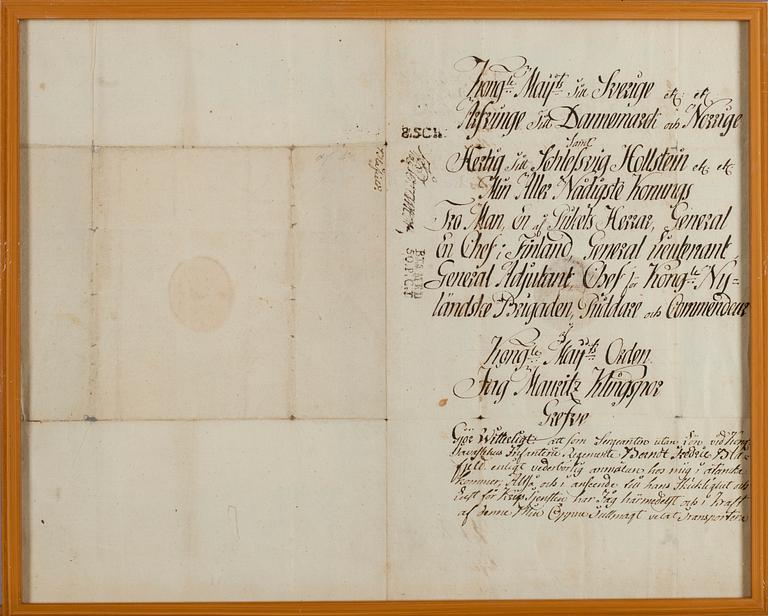 Kongl: Maÿts till Sverige etc: etc
Arfvinge till Dannemarck och Norrige
samt
Hertig till Schlesvig Hollstein etc etc
Min Aller Nådigste Konungs
Tro Man, En af Rikets Herrar, General
En Chef i Finland, General Lieutenant
General Adjutant, Chef för Kongle Ny-
ländske Brigaden, Riddare och Commendeur
af
Kongle Maÿts Orden.
Jag Mauritz Klingspor
Grefve
Gör Witterligt att som Sergeanten utan Lön vid Kongl
Infanterie Regemente Berndt Fredric Blå-
field enligt vederbörlig anmälan hos mig i åtanke
kommer, Altså och i anseende till hans Skicklighet och
Lust för Krigs Tjensten har Jag härmedelst och i Kraft
af denne Min Öppne Fullmagt velat Transportera